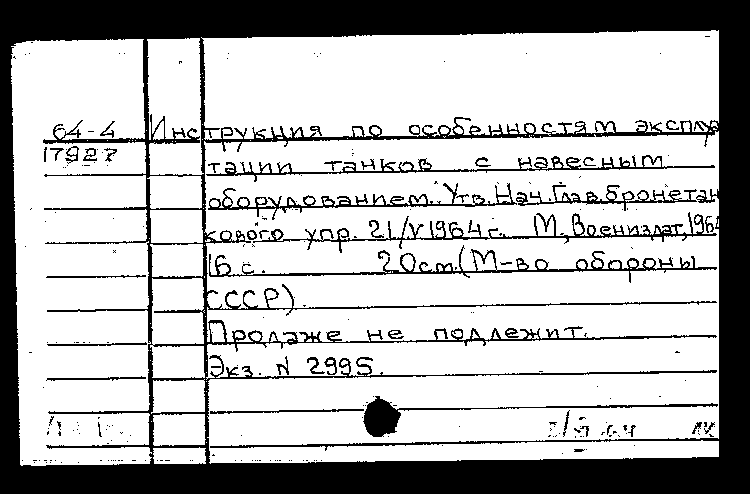 64-4 Инструкция по особенностям эксплуа
17927 тации танков с навесным
оборудованием. Утв. Нач. Глав. бронетан
кового упр. 21/V 1964 г. М., Воениздат, 1964
16 с. 20 см. (М-во обороны
СССР).
Продаже не подлежит.
Экз. N 2995.